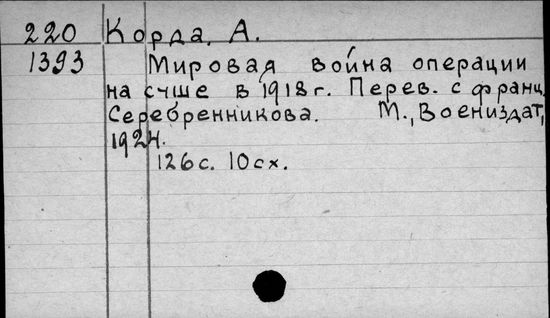 220 Корда, А.
1393 Мировая война операции
на счше в 1918 г. Перев. с франц.
Серебренникова. М., Воениздат,
1924.
126 с. 10 сх.